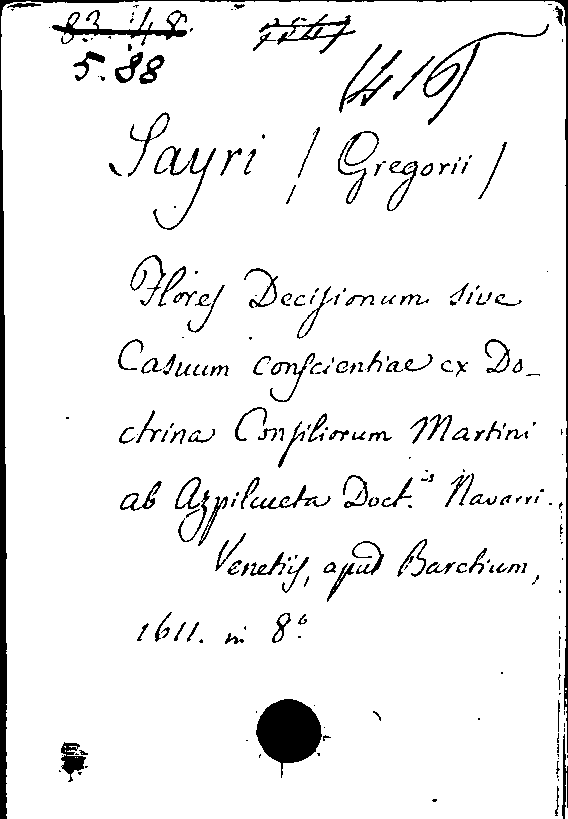 83 48
5.88
(416)
Sayri / Gregorii /
Flores Decisionum sive
Casuum conscientiae ex Do_
ctrina Consiliorum Martini
ab Azpilcueta Doct.is Navarri.
Venetiis, apud Baretium,
1611. in 8º.